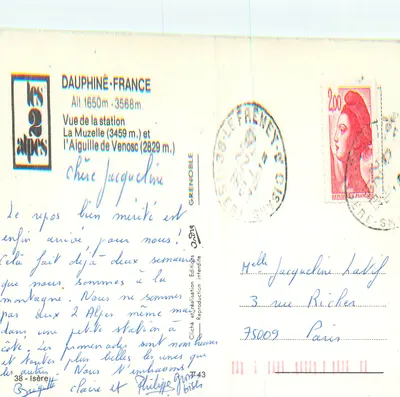 les
2
alpes
DAUPHINÉ-FRANCE
Alt 1650m - 3568m
Vue de la station
La Muzelle (3459 m.) et
l'Aiguille de Venosc (2829 m.)
Chère Jacqueline
Le repos bien mérité est
enfin arrivé pour nous!
Celà fait déjà deux semaines
que nous sommes à la
montagne. Nous ne sommes
pas aux 2 Alpes même mais
dans une petite station à
côté. Les promenades sont nombreuses
et toutes plus belles les unes que
les autres. Nous t'embrassons
Brigitte Claire et Philippe
38 - Isère
GRENOBLE
Cliché et réalisation Editions
Reproduction interdite
2,00
38 LE FRENEY D'OISANS
Melle Jacqueline
3 rue Richer
75009 Paris